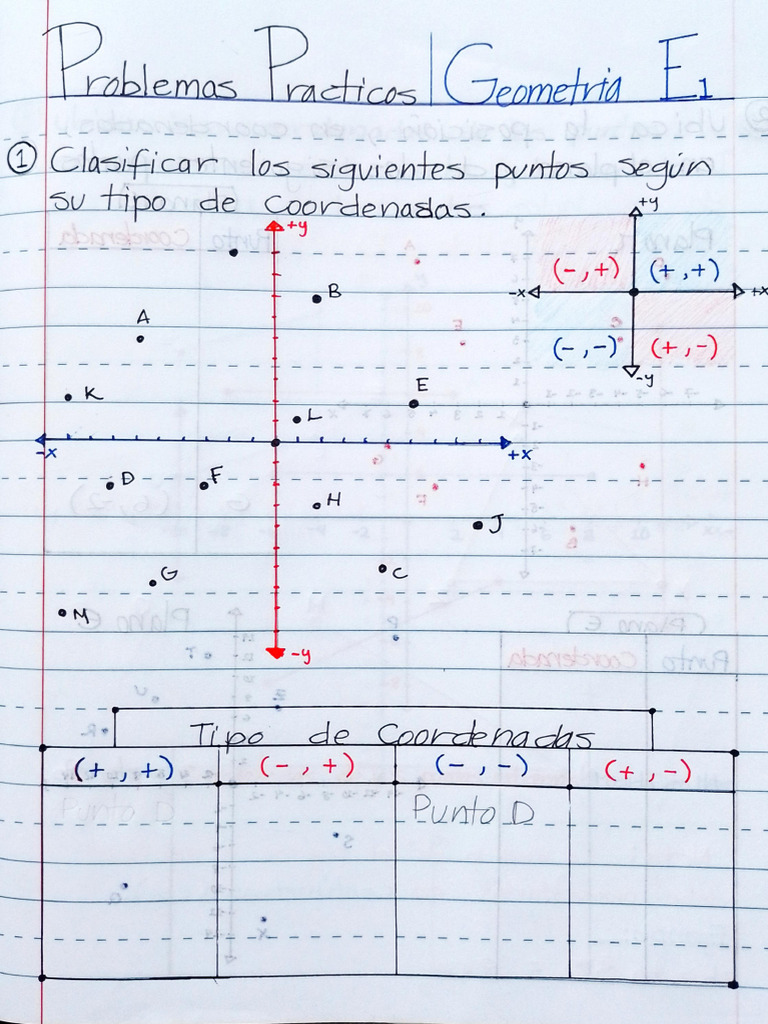 Problemas Practicos | Geometria E1
① Clasificar los siguientes puntos según
su tipo de coordenadas.
+y
+y
(-,+) (+,+)
-x +x
(-,-) (+,-)
-y
B
A
K
E
L
-x +x
D F
H
J
G C
M
-y
Tipo de Coordenadas
(+,+) (-,+) (-,-) (+,-)
Punto D